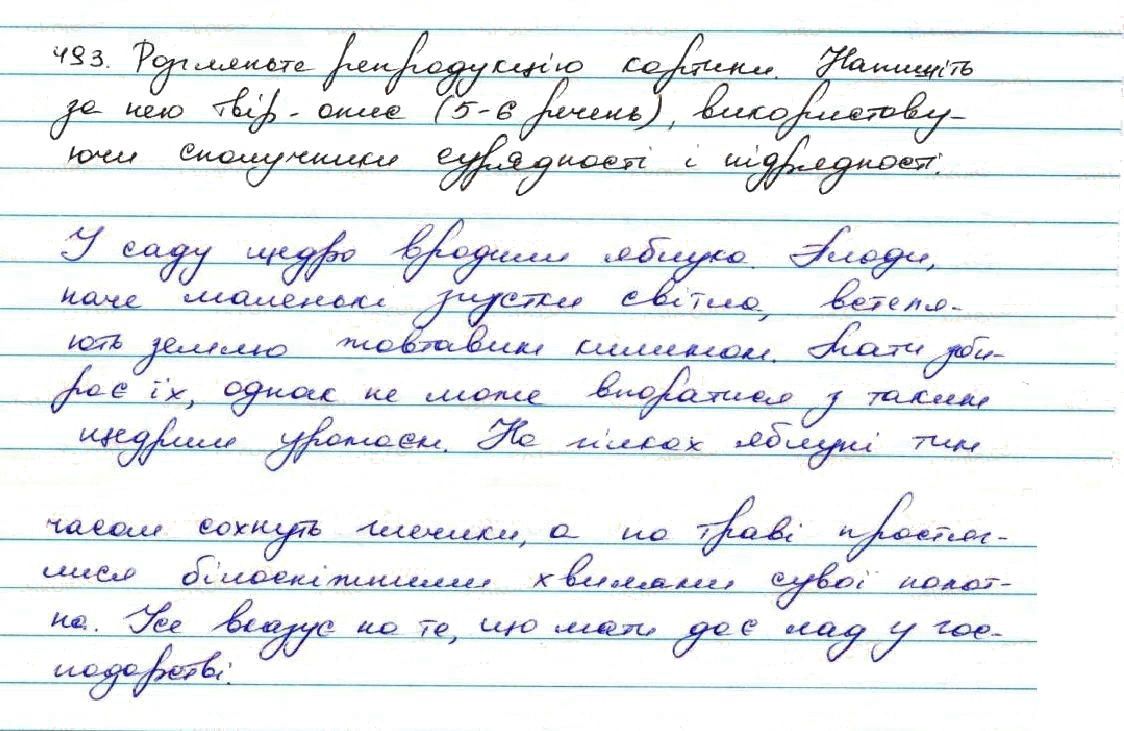 493. Розгляньте репродукцію картини. Напишіть
за нею твір-опис (5-6 речень), використову-
ючи сполучники сурядності і підрядності.
У саду щедро вродили яблука. Плоди,
наче маленькі згустки світла, встеля-
ють землю жовтавим килимом. Мати зби-
рає їх, однак не може впоратися з таким
щедрим урожаєм. На гілках яблуні тим
часом сохнуть глечики, а по траві простяг-
лися білосніжними хвилями сувої полот-
на. Усе вказує на те, що мати дає лад у гос-
подарстві.